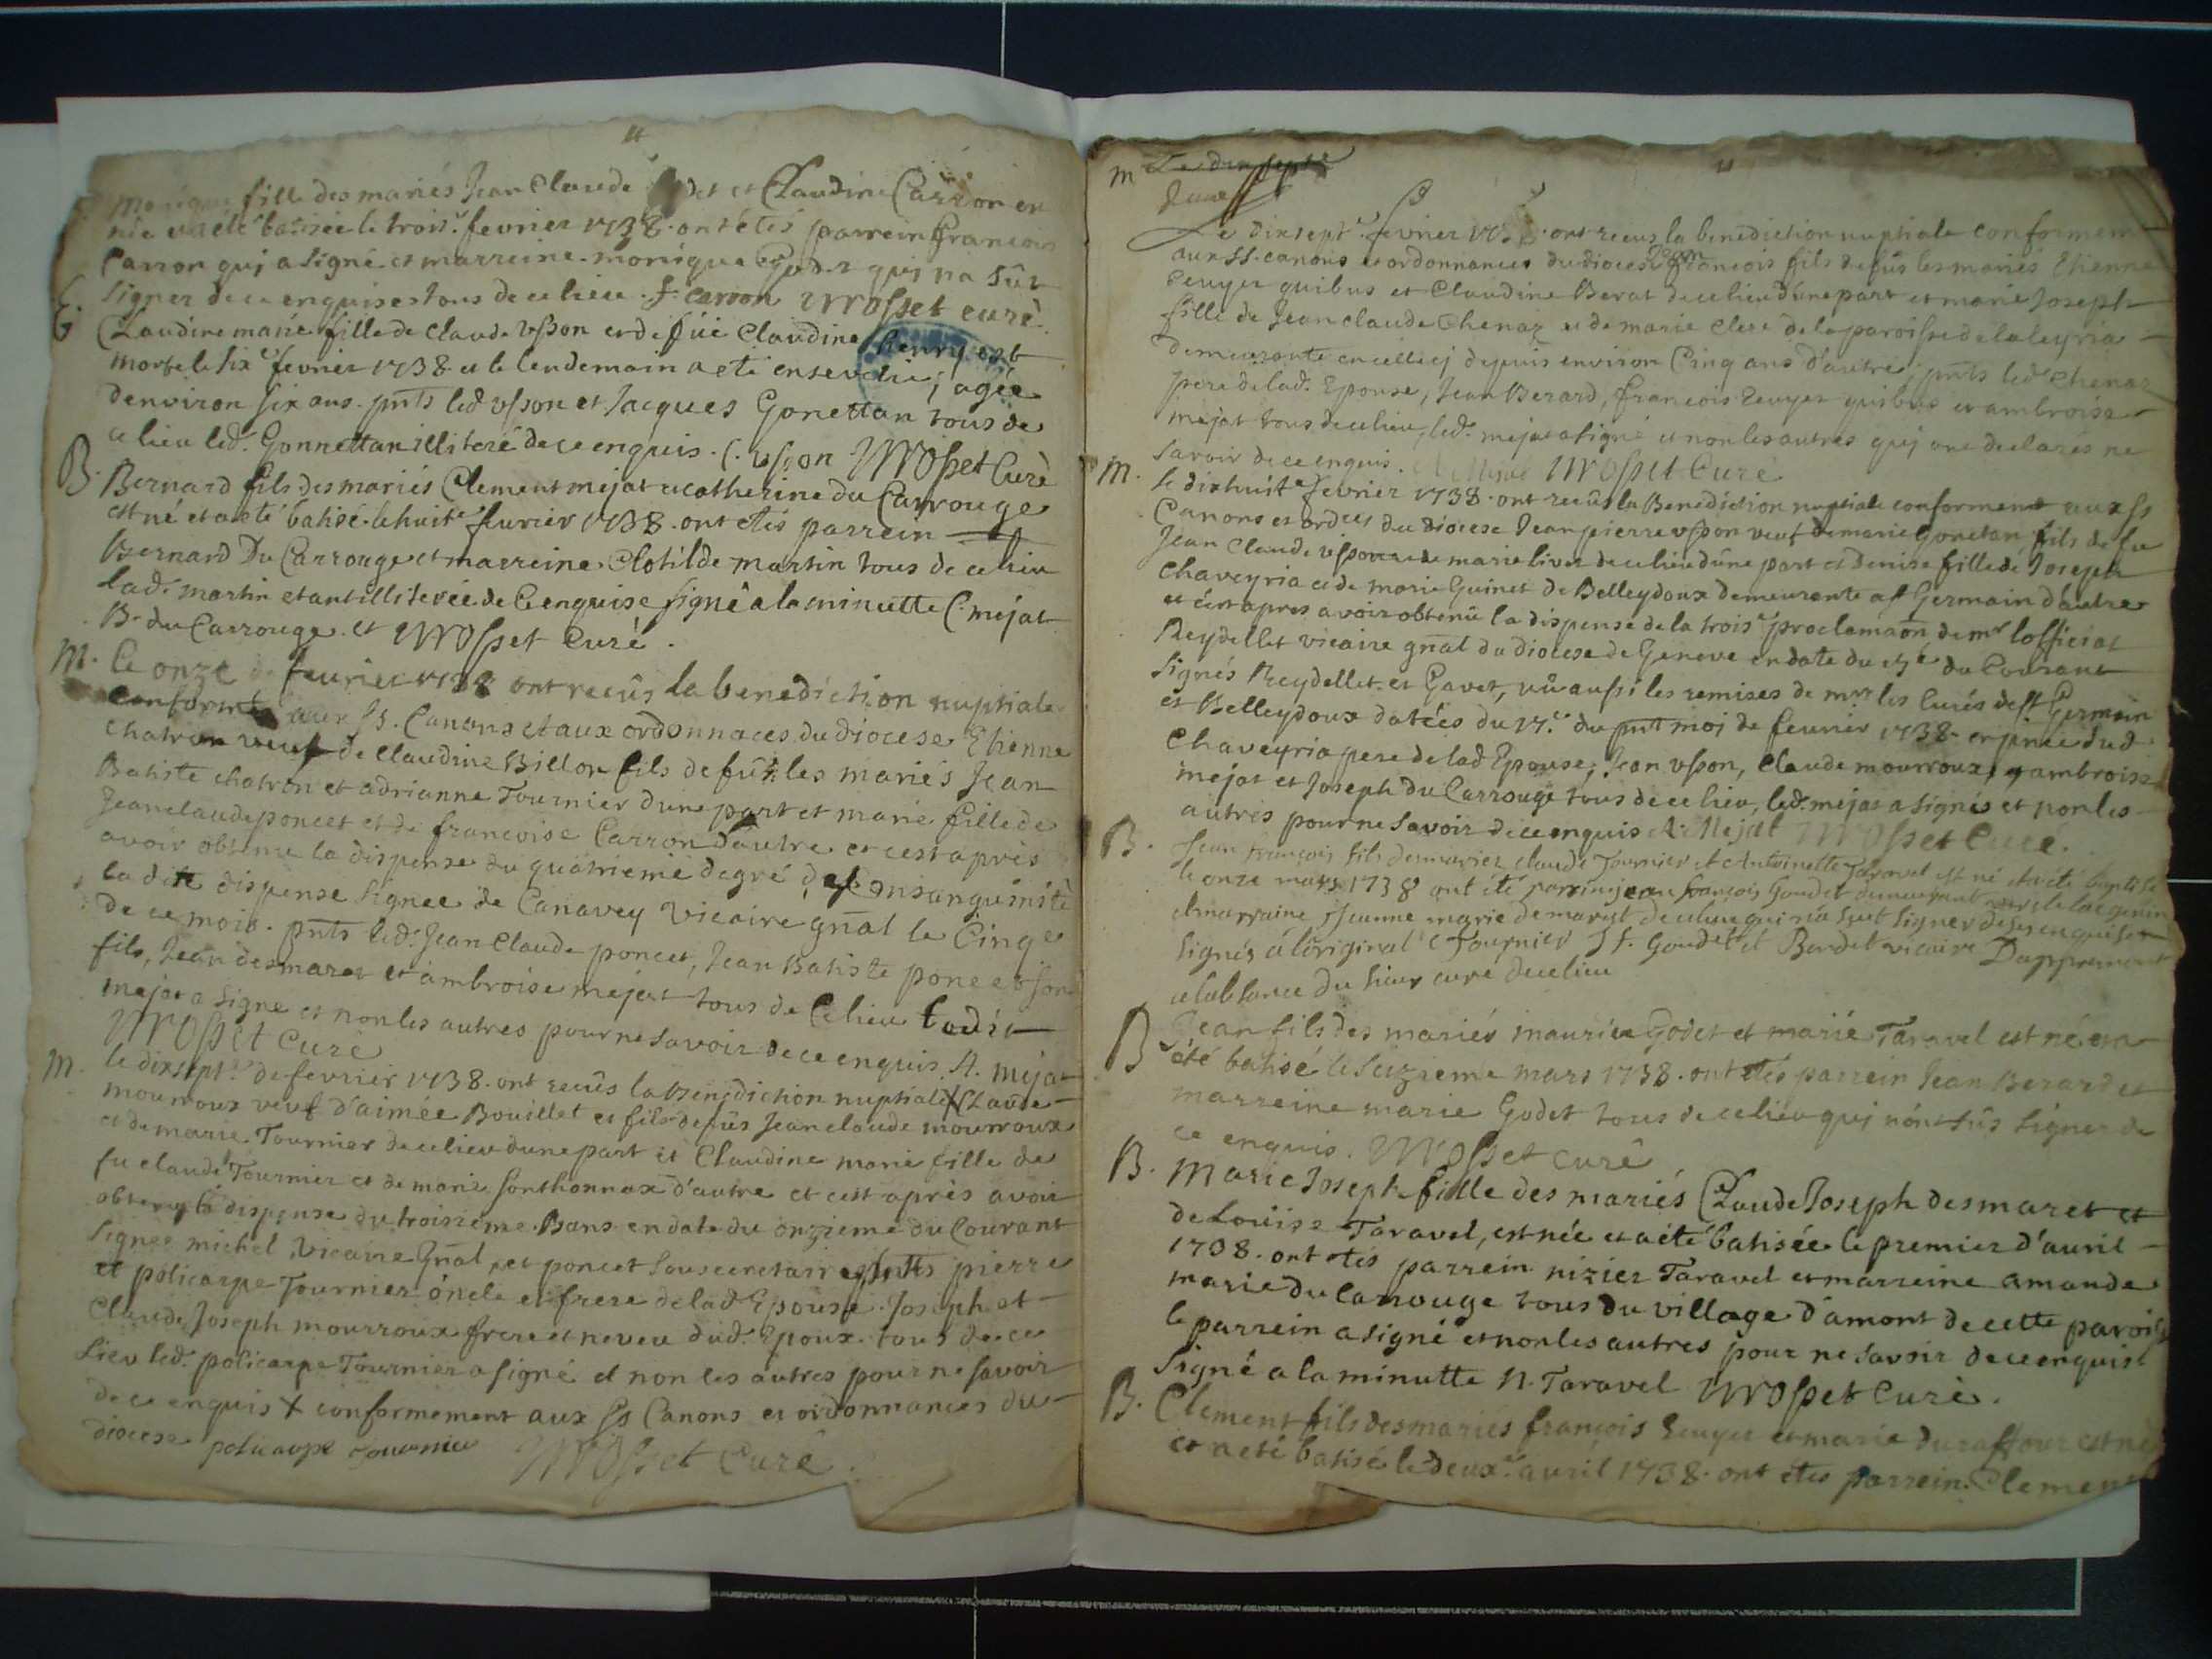 fille des mariés Jean Claude et Claudine Carron
née et a été batisée le trois.e fevrier 1738. ont étés parrein francois
Carron qui a signé et marreine monique Godet qui na sût
signer de ce enquises tous de ce lieu. f. carron Mosset curé.
Claudine marie fille de Claude Usson et de füe Claudine henry est
morte le six.e fevrier 1738 et le lendemain a eté ensevelie, agée
denviron six ans. pnts led usson et Jacques Gonettan tous de
ce lieu led. Gonnettan illiteré de ce enquis. C. usson Mosset Curè
B. Bernard fils des mariés Clement mejat et catherine du Carrouge
est né et a eté batisé le huit.e fevrier 1738. ont etés parrein
Bernard Du Carrouge et marreine Clotilde martin tous de ce lieu
lad. martin etant illiterée de ce enquise signé a la minutte C. mejat
B. du Carrouge. et Mosset Curé.
M. Le onze de fevrier 1738 ont recûs la benediction nuptiale
conforme aux SS. Canons et aux ordonnaces du diocese Etienne
Chatron veuf de Claudine Billon fils de fûs les mariés Jean
Batiste chatron et adrianne Tournier dune part et marie fille de
Jean claude poncet et de francoise Carron dautre et cest après
avoir obtenu la dispense du quatrieme degré de Consanguinité
la dite dispense signee de Canavey vicaire gñal le Cinq.e
de ce mois. pnts led. Jean Claude poncet, Jean Batiste poncet son
fils, Jean desmaret et ambroise mejat tous de Ce lieu ledit
mejat a signe et non les autres pour ne savoir de ce enquis. A. mejat
Mosset Curé
M. le dixsept.e de fevrier 1738. ont recûs la benediction nuptiale X Claude
mourroux veuf d'aimée Bouillet et fils de fûs Jean claude mourroux
et de marie Tournier de ce lieu dune part et Claudine marie fille de
fu claude Tournier et de marie sonthonnax d'autre et cest après avoir
obtenu la dispense du troisieme Bans en date du onzieme du Courant
signée michel Vicaire Gñal, et poncet sousecretaire pnts pierre
et policarpe Tournier oncle et frere de lad Epouse. Joseph et
Claude Joseph mourroux frere et neveu dud. Epoux. tous de ce
Lieu led. policarpe Tournier a signé et non les autres pour ne savoir
de ce enquis X conformement aux SS Canons et ordonnances du
diocese policarpe tournier Mosset Curé.
m Le dixsept.e
Le dixsept.e fevrier ont recus la benediction nuptiale conformem
aux SS. canons et ordonnances du diocese Jean francois fils de fûs les mariés Etienne
Ecuyer quibus et Claudine Berat de ce lieu d'une part et marie Joseph
fille de Jean claude Chenaz et de marie Clerc de la paroisse de laleyria
demeurante en celle cy depuis environ Cinq ans d'autre, pnts led Chenaz
pere de lad. Epouse, Jean Berard, francois Ecuyer quibus et ambroise
mejat tous de ce lieu, led. mejat a signé et non les autres qui ont declarés ne
savoir de ce enquis. A Mejat Mosset Curé
M. le dixhuit.e fevrier 1738. ont recûs la Benediction nuptiale conforment aux SS
Canons et ordces du diocese Jean pierre usson veuf de marie Gonetan, fils de fu
Jean Claude usson et de marie livet de ce lieu d'une part et denise fille de Joseph
Chaveyria et de marie Guinet de Belleydoux demeurante a St Germain d'autre
et c'est apres avoir obtenû la dispense de la trois.e proclamaõn de mr lofficial
Reydellet vicaire gñal du diocese de Geneve en date du du Courant
signés Reydellet et Gavet, vû aussi les remises de mrs les Curés de St Germain
et Belleydoux datées du 17.e du pnt moi de fevrier 1738. en pnce dud
Chaveyria pere de lad Epouse, Jean usson, Claude mourroux, ambroise
mejat et Joseph du Carrouge tous de ce lieu, led. mejat a signés et non les
autres pour ne savoir de ce enquis A. Mejat Mosset Curé.
B. Jean françois fils des mariez claude Tournier et Antoinette Taravel est né et a été baptisé
le onze mars 1738 ont été parrin jean françois Goudet demeurant
et marraine Jeanne marie demaret de ce lieu qui n'a sçut signer de ce enquise
signés à l'original C Tournier J f. Goudet et Bardet vicaire Dapprement
en labsence du sieur curé de ce lieu
B Jean fils des mariés maurice Godet et marie Taravel est né et a
été batisé le seizieme mars 1738. ont etés parrein Jean Berard et
marreine marie Godet tous de ce lieu qui n'ont sûs signer de
ce enquis. Mosset curé
B. Marie Joseph fille des mariés Claude Joseph desmaret et
de Loüise Taravel, est née et a été batisée le premier d'avril
1738. ont etés parrein nizier Taravel et marreine amande
marie du Carrouge tous du village d'amont de cette paroisse
le parrein a signé et non les autres pour ne savoir de ce enquis
signé a la minutte N. Taravel Mosset Curé.
B. Clement fils des mariés françois Ecuyer et marie duraffour est né
et a eté batisé le deux.e avril 1738. ont etés parrein Clement